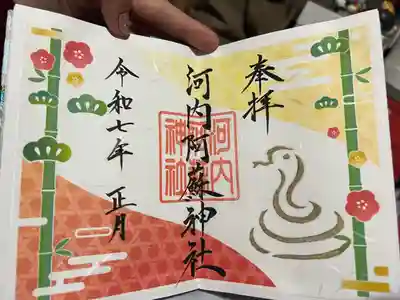 奉拝
河内阿蘇神社
河内
阿蘇
神社
令和七年 正月